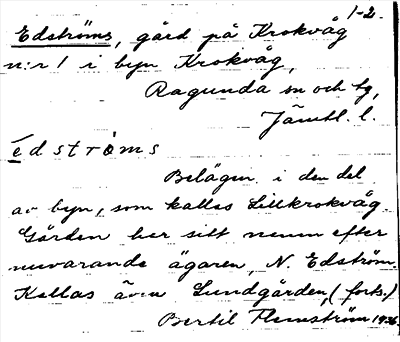 1-2.
Edströms, gård på Krokvåg
n:r 1 i byn Krokvåg,
Ragunda sn och tg,
Jämtl. l.
édströms
Belägen i den del
av byn, som kallas Lillkrokvåg.
Gården har sitt namn efter
nuvarande ägaren, N. Edström.
Kallas även Lundgården, (forts.)
Bertil Flemström 1936.